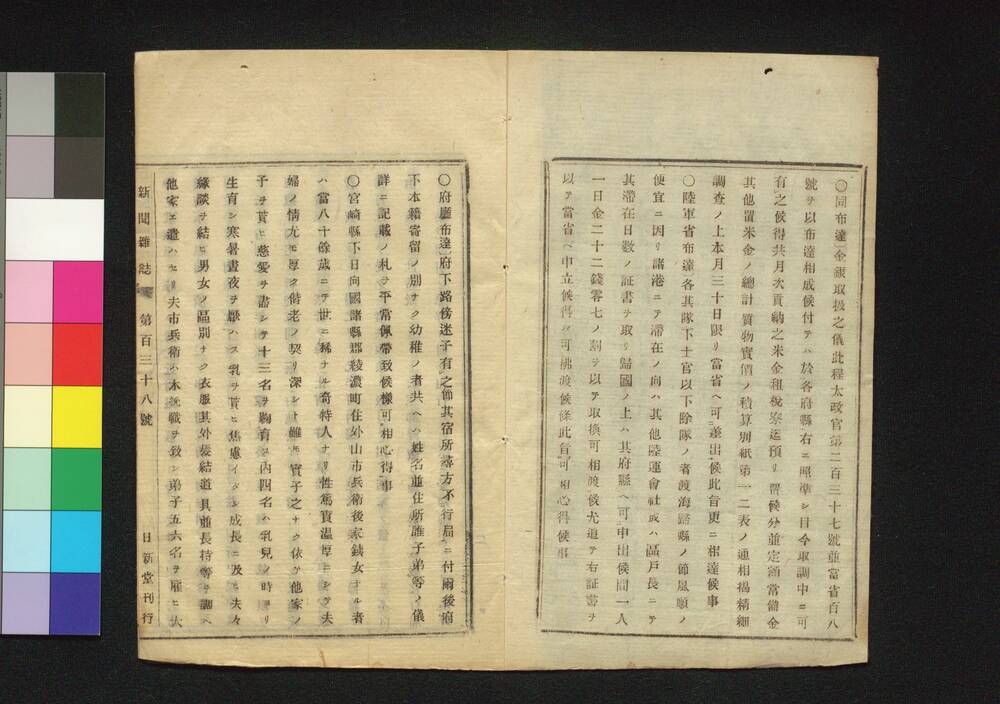 ○同布達金銀取扱之儀此程太政官第二百三十七號並當省百八
號ヲ以布達相成候付テハ於各府縣右ニ照準シ目今取調中ニ可
有之候得共月次貢納之米金租税寮迄預リ置候分並定額常備金
其他置米金ノ總計質物實價ノ積算別紙第一二表ノ通相揭精細
調查ノ上本月三十日限リ當省ヘ可差出候此旨更ニ相達候事
○陸軍省布達各其隊下士官以下除隊ノ者渡海歸縣ノ節風順ノ
便宜ニ因リ諸港ニテ滯在ノ向ハ其他陸運會社或ハ區戸長ニテ
其滯在日數ノ証書ヲ取リ歸國ノ上ハ其府縣ヘ可申出候間一人
一日金二十二錢零七ノ割ヲ以テ取換可相渡候尤追テ右証書ヲ
以テ當省ヘ申立候得ハ可拂渡候條此旨可相心得候事
○府廳布達府下路傍迷子有之節其宿所尋方不行屆ニ付爾後府
下本籍寄留ノ別ナク幼稚ノ者共ヘハ姓名並住所誰子弟等ノ儀
詳ニ記載ノ札ヲ平常佩帶致候樣可相心得事
○宮崎縣下日向國諸縣郡綾濃町住外山市兵衛後家銭女ナル者
ハ當八十餘歳ニテ世ニ稀ナル奇特人ナリ性篤實温厚ニシテ夫
婦ノ情尤モ厚ク偕老ノ契リ深シト雖モ實子之ナク依テ他家ノ
子ヲ貰ヒ慈愛ヲ盡シテ十三名ヲ鞠育シ内四名ハ乳兒ノ時ヨリ
生育シ寒暑晝夜ヲ厭ハス乳ヲ貰ヒ焦慮イタシ成長ニ及ヒ夫々
緣談ヲ結ヒ男女ノ區別ナク衣服其外髮結道具並長持等ヲ調ヘ
他家エ遣ハセリ夫市兵衛ハ木挽職ヲ致シ弟子五六名ヲ雇ヒ大
新聞雜誌 第百三十八號 日新堂刊行